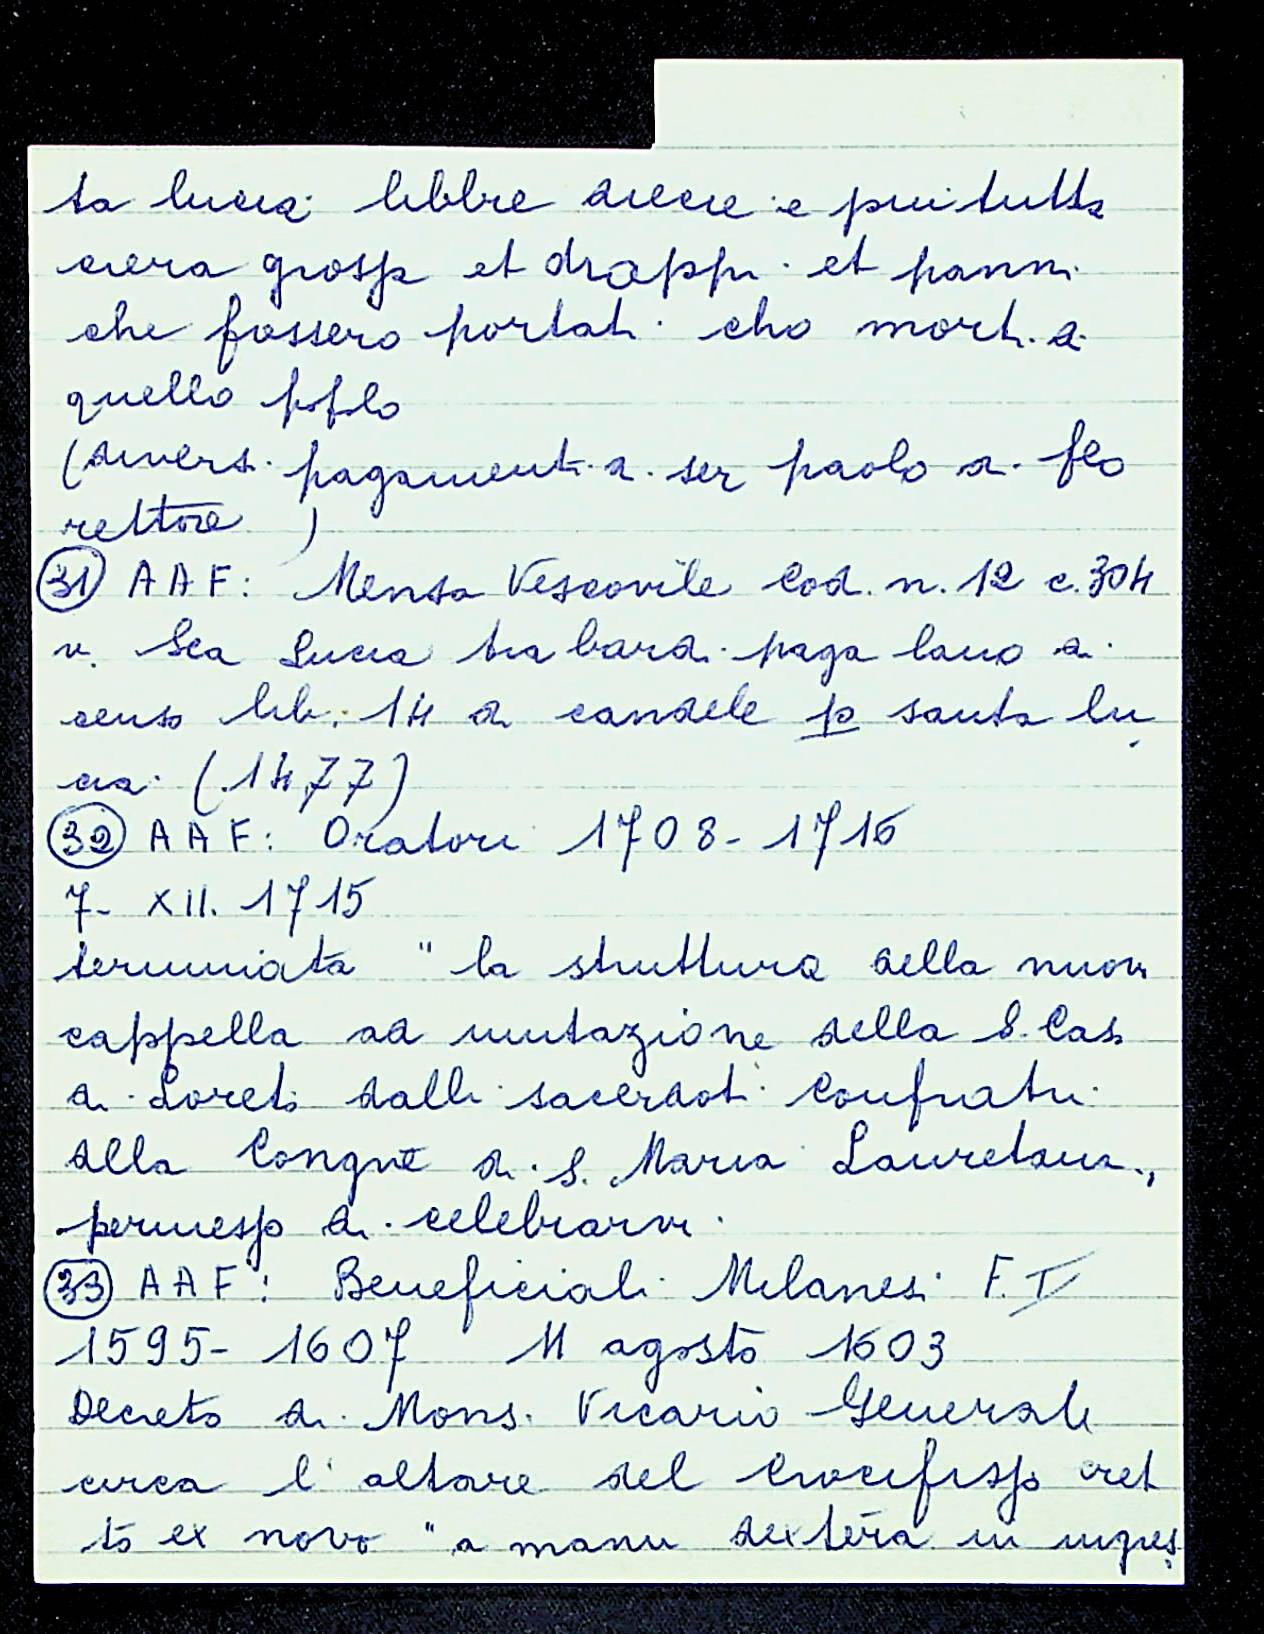 ta lucia libbre diecie e piui tutta
ciera grossa et drappi et panni
che fossero portati cho morti a
quello popolo
(diversi pagamenti a ser paolo di
rettore)
31 AAF: Mensa Vescovile Cod. n. 12 c. 304
v. Sca Lucia tra bardi paga lano di
censo lib. 14 di candele p santa lu
cia (1477)
32 AAF: Oratori 1708-1716
7- XII. 1715
terminata "la struttura della nuova
cappella ad imitazione della S. Casa
di Loreto dalli sacerdoti Confratri
della Congne di S. Maria Lauretana,
permesso di celebrarvi.
33 AAF: Beneficiali Milanesi F. I
1595-1607 11 agosto 1603
Decreto di Mons. Vicario Generale
circa l'altare del Crocifisso eret
to ex novo "a manu dextera in ingres